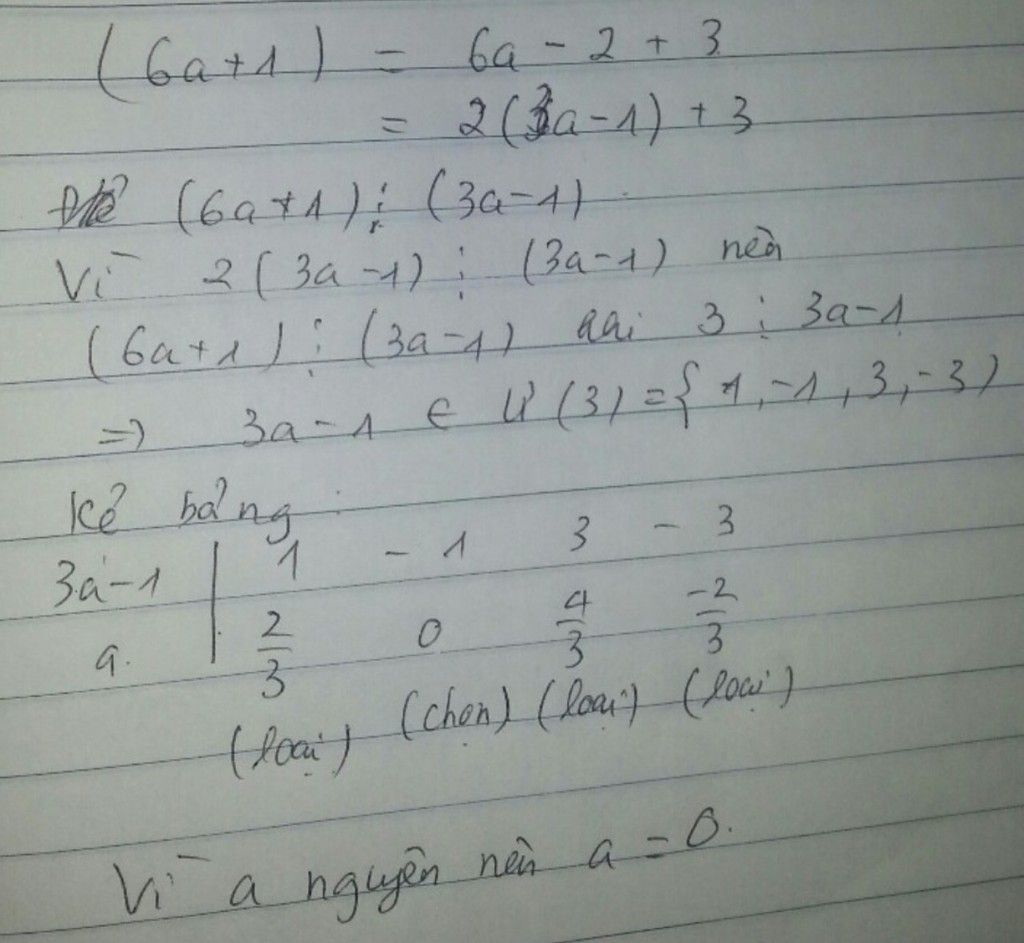 (6a+1) = 6a - 2 + 3
= 2(3a-1) + 3
Để (6a+1) ⋮ (3a-1)
Vì 2(3a-1) ⋮ (3a-1) nên
(6a+1) ⋮ (3a-1) 3 ⋮ 3a-1
=> 3a-1 ∈ Ư(3) = {1, -1, 3, -3)
Kẻ bảng:
3a-1 | 1 -1 3 -3
a. | 2/3 0 4/3 -2/3
(loại) (chọn) (loại) (loại)
Vì a nguyên nên a = 0.